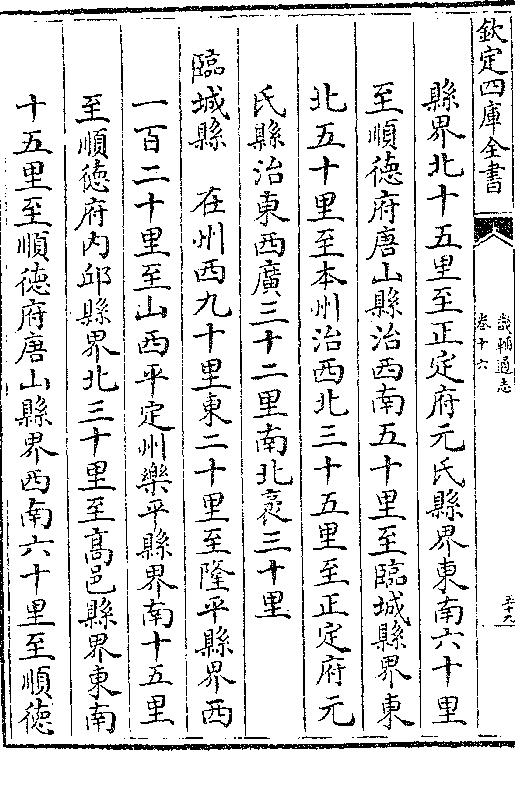 欽定四庫全書
畿輔通志
卷十六
五十九
縣界北十五里至正定府元氏縣界東南六十里
至順徳府唐山縣治西南五十里至臨城縣界東
北五十里至本州治西北三十五里至正定府元
氏縣治東西廣三十二里南北袤三十里
臨城縣　在州西九十里東二十里至隆平縣界西
一百二十里至山西平定州樂平縣界南十五里
至順徳府内邱縣界北三十里至高邑縣界東南
十五里至順徳府唐山縣界西南六十里至順徳